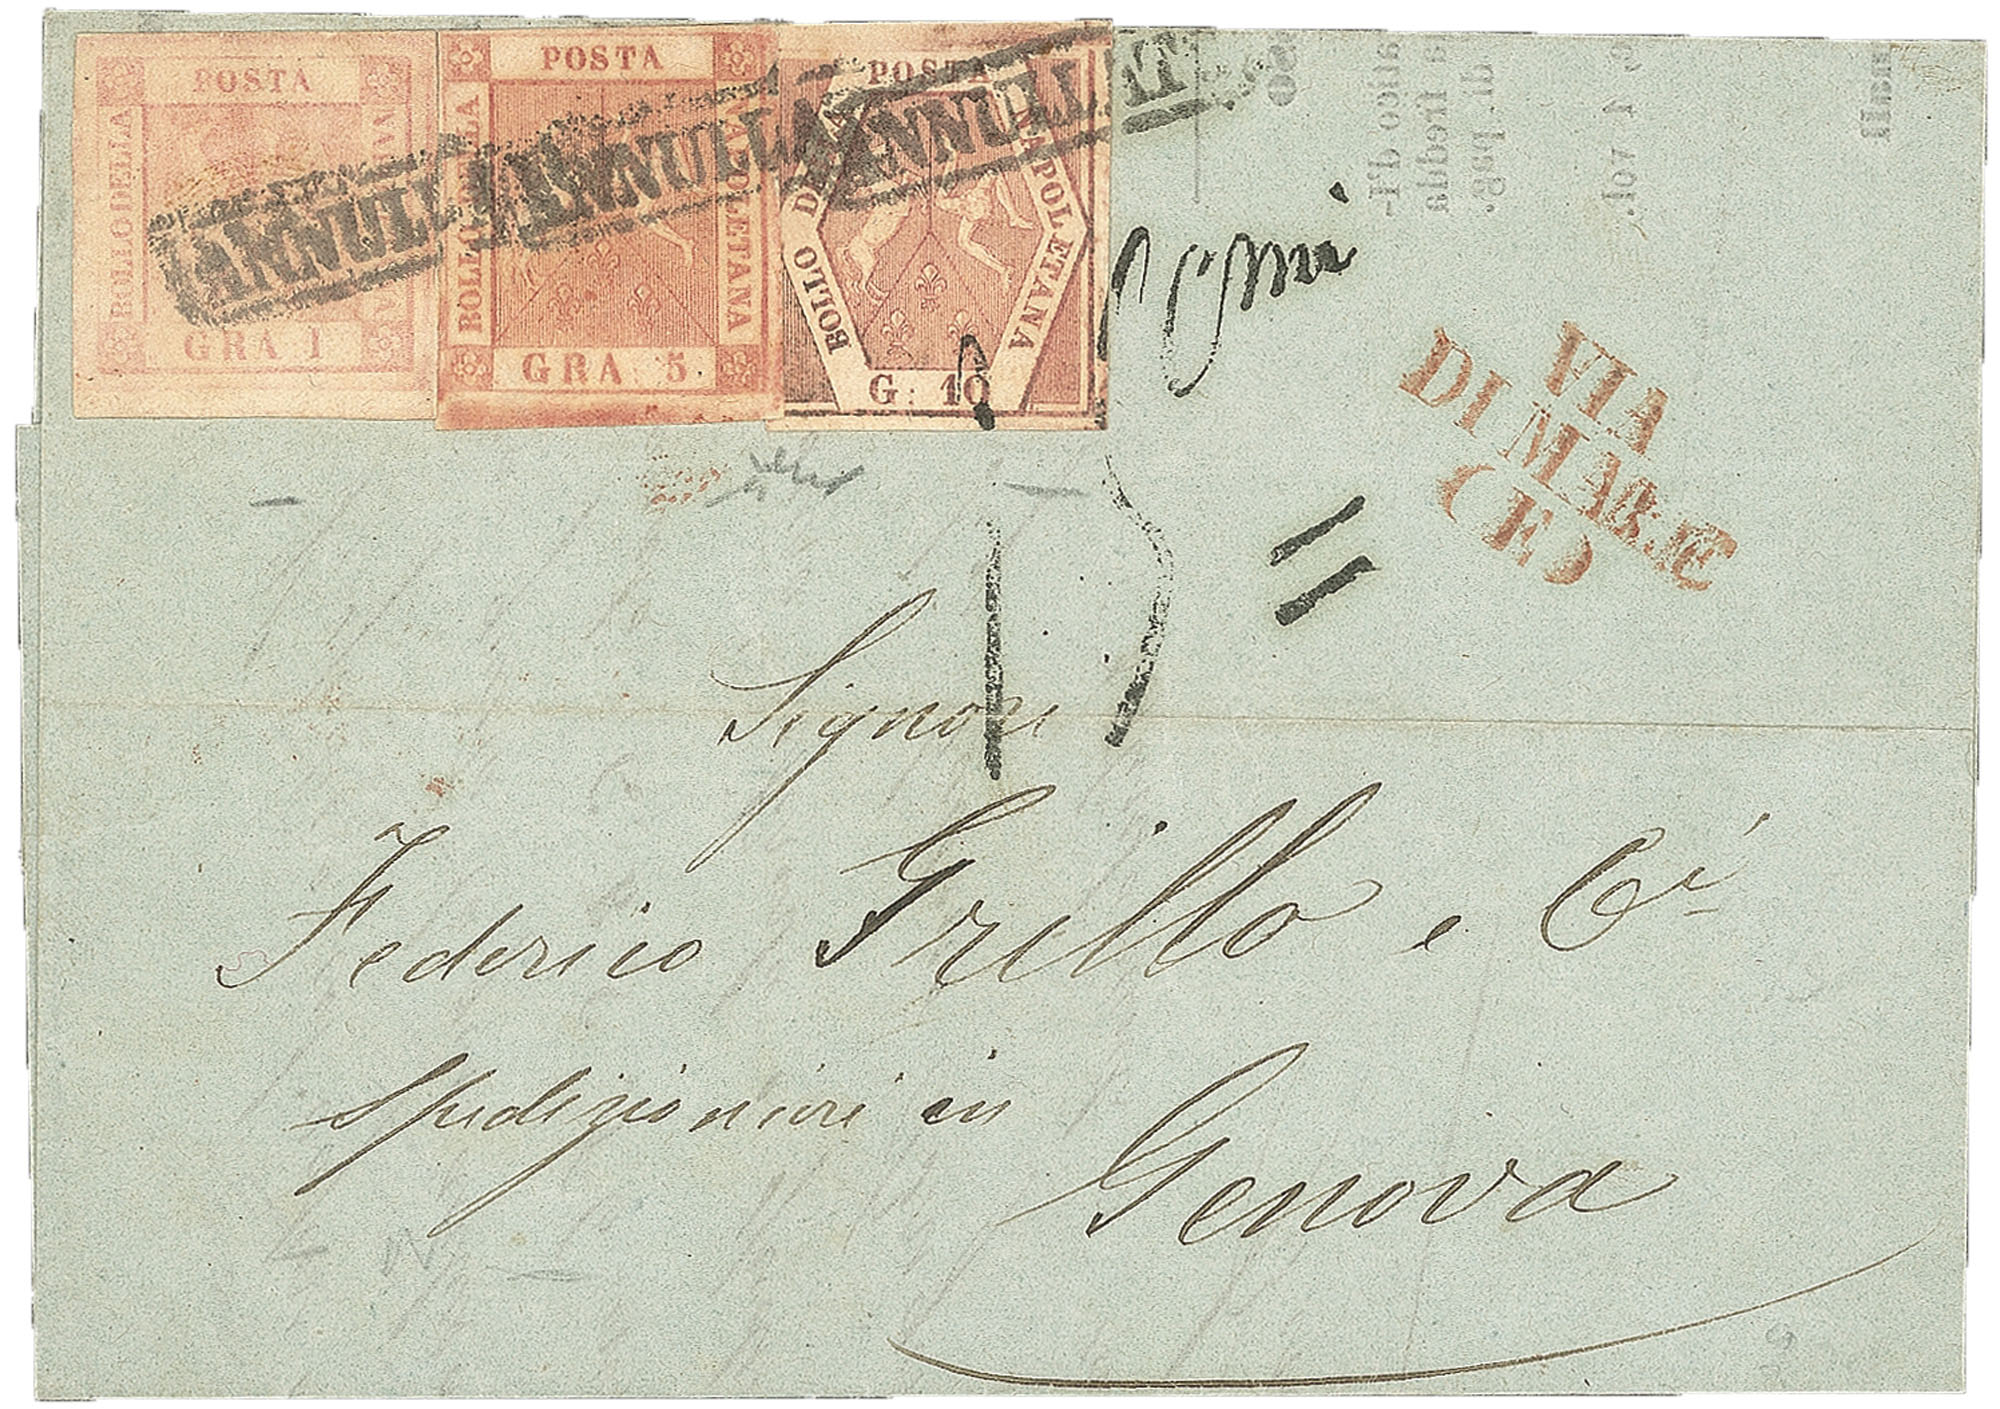 POSTA
BOLLO DELLA
GRA 1
POSTA
BOLLO DELLA
NAPOLETANA
GRA 5
POSTA
BOLLO DELLA
NAPOLETANA
G: 10
ANNULLATO
ANNULLATO
ANNULLATO
VIA
DI MARE
(E)
Signori
Federico Grillo e Ci
Spedizionieri in
Genova